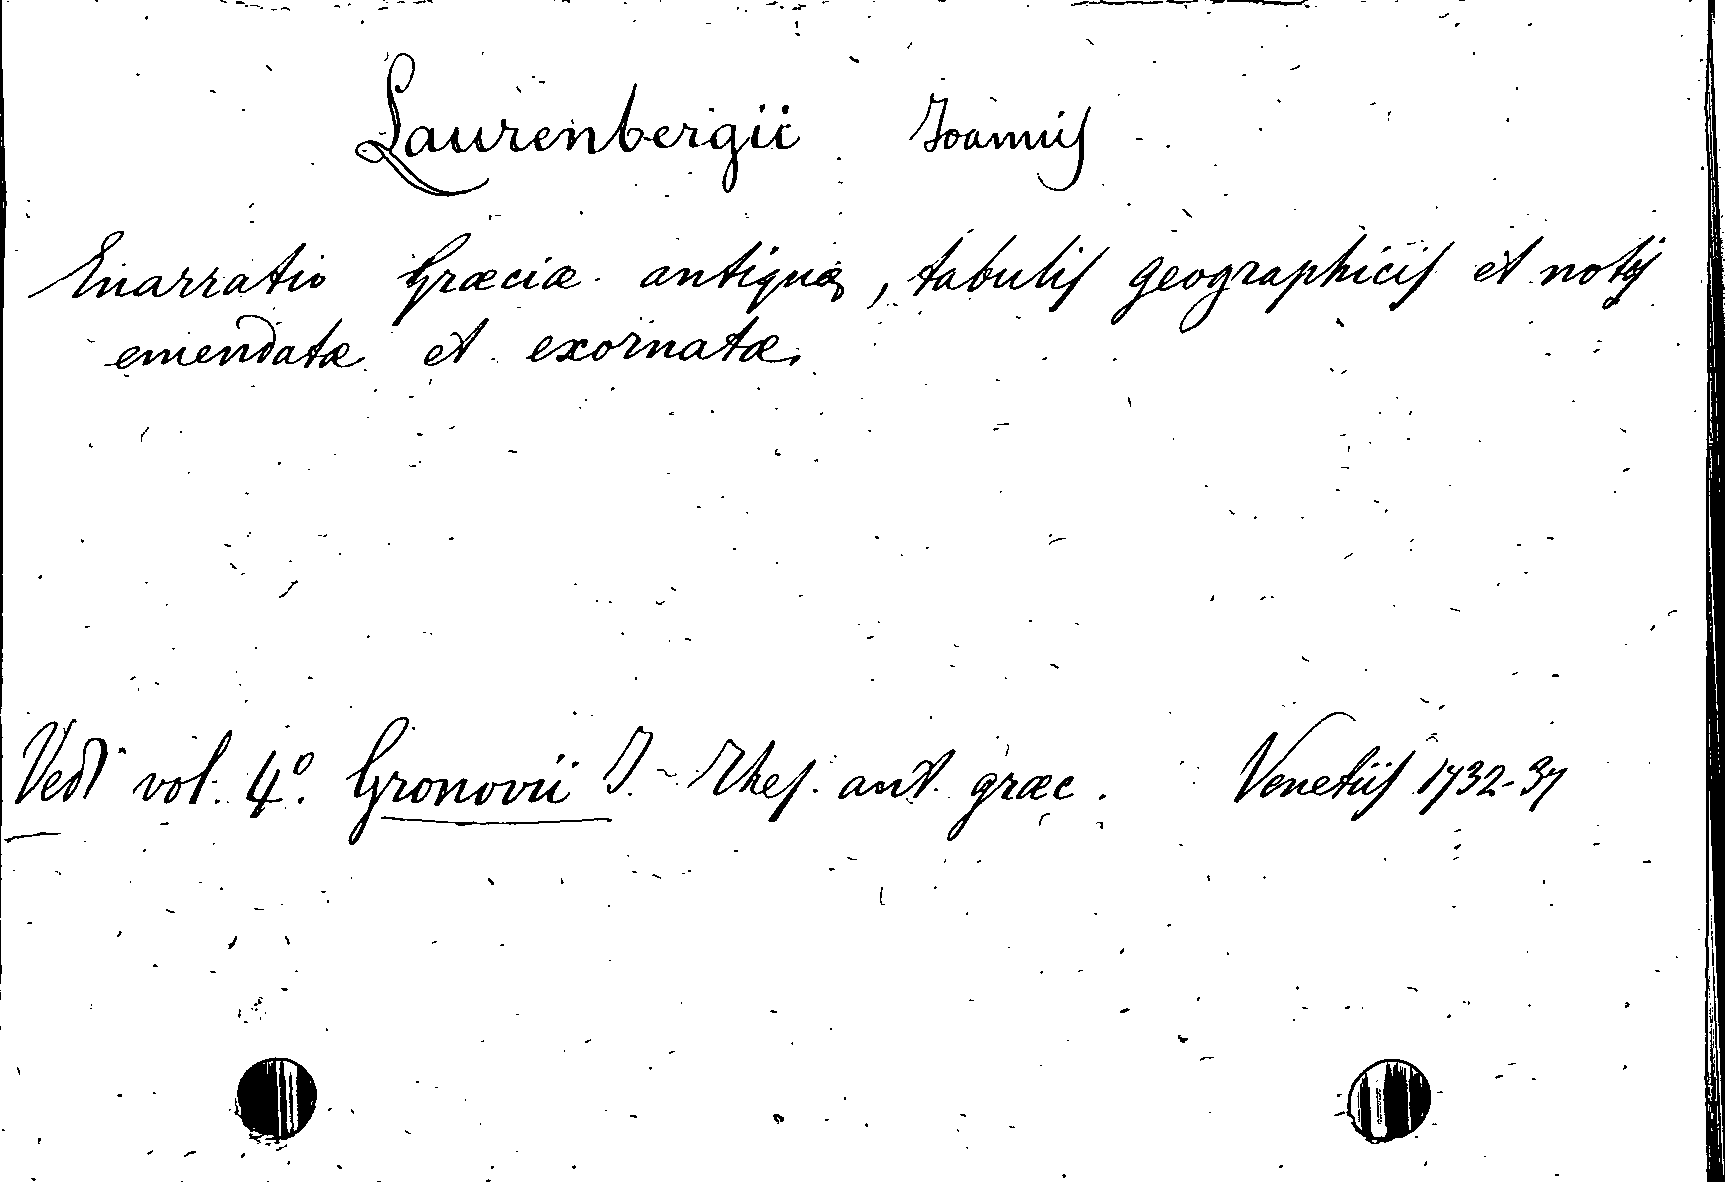 Laurenbergii Joannis
Enarratio Græciæ antiquæ, tabulis geographicis et notis
emendatæ et exornatæ.
Vedi vol. 4º. Gronovii J. - Thes. ant. græc. Venetiis 1732-37